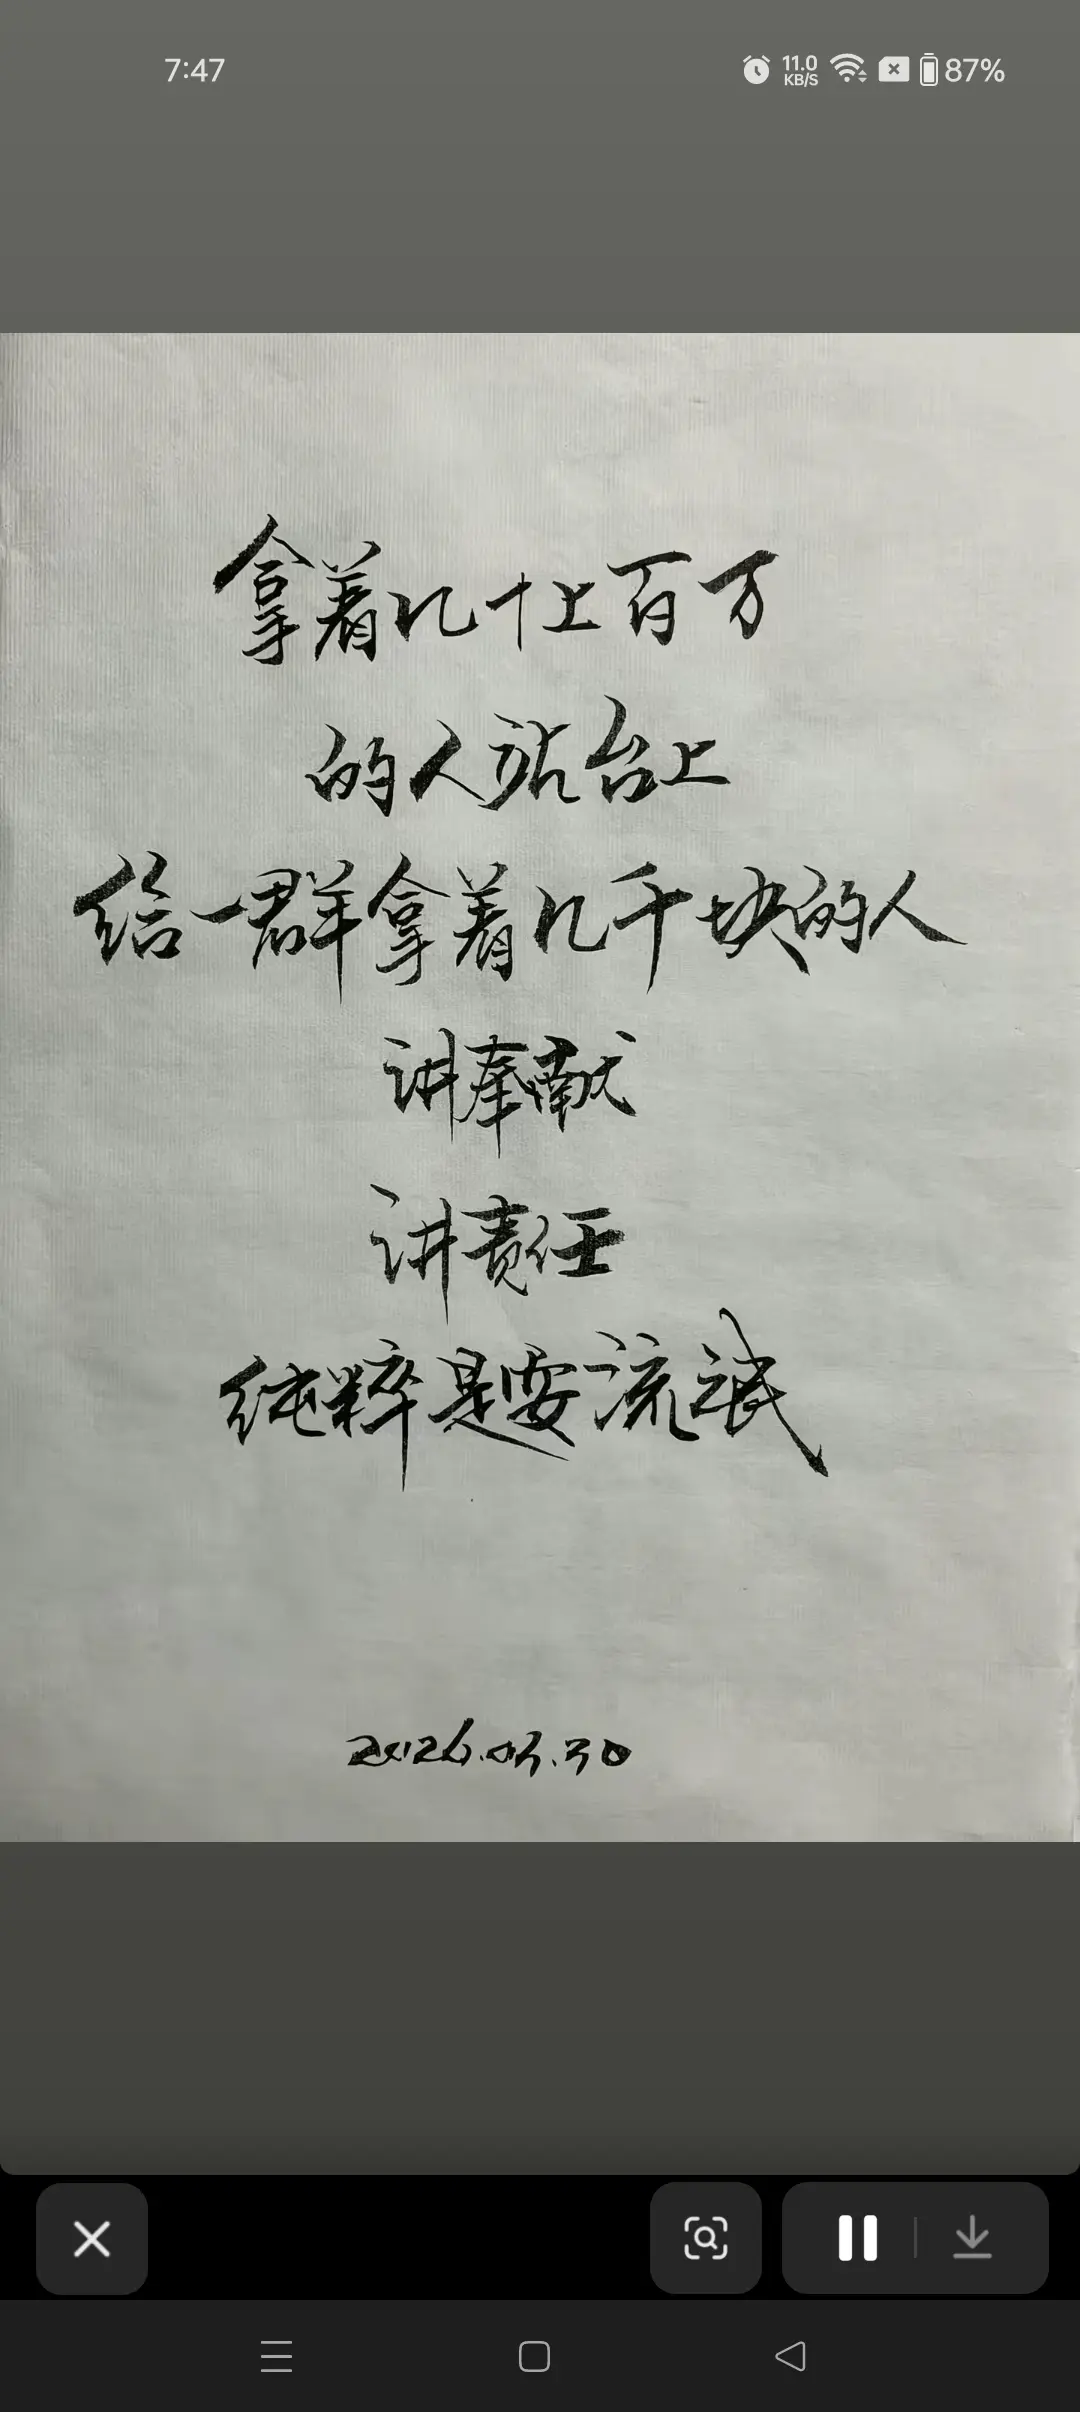 7:47
11.0
KB/S
87%
拿着几十上百万
的人站台上
给一群拿着几千块的人
讲奉献
讲责任
纯粹是耍流氓
2026.03.30